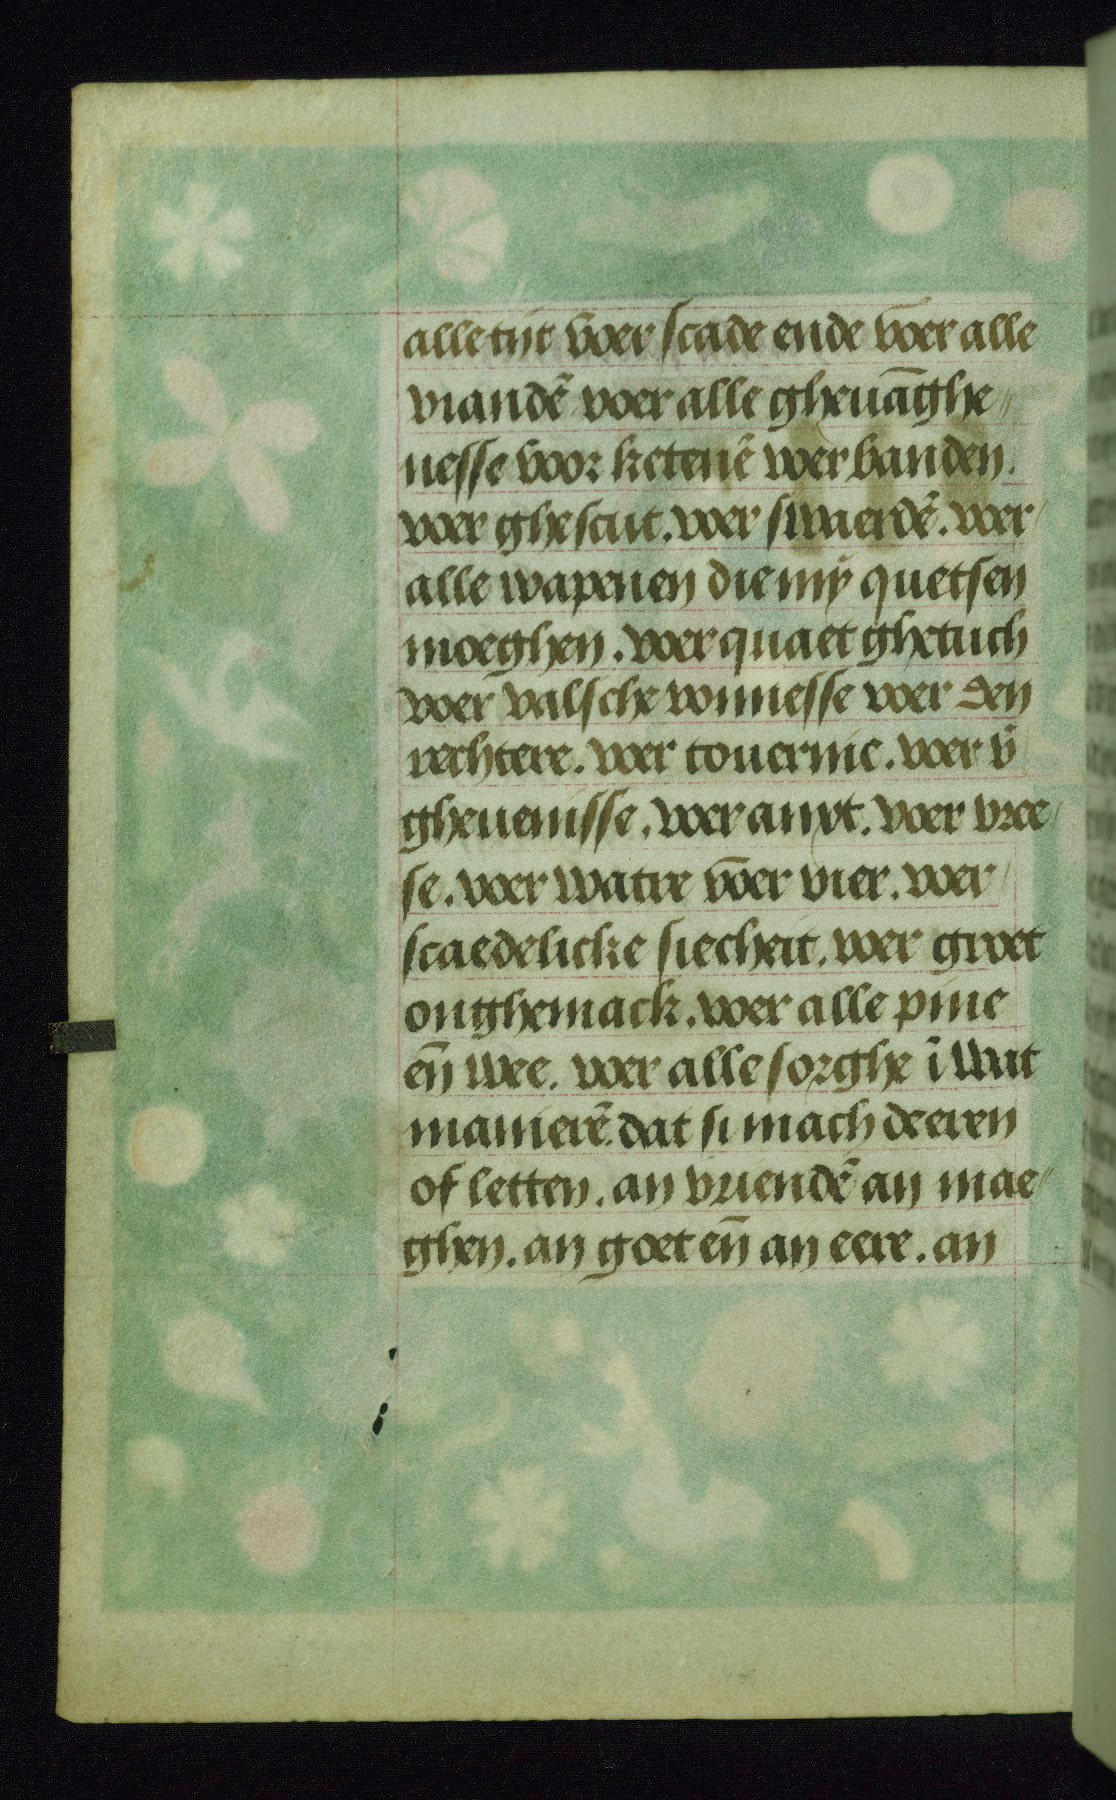 alle tijt voer scade ende voer alle
viandē voer alle gheuāghe
nesse voor ketenē voer banden.
voer ghescut. voer swaerdē. voer
alle wapenen die mÿ quetsen
moeghen. voer quaet ghetuch
voer valsche vonnesse voer den
rechtere. voer touernie. voer v̄
gheuenisse. voer anxt. voer vree
se. voer watre voer vier. voer
scaedelicke siecheit. voer groet
onghemack. voer alle pine
eñ wee. voer alle sorghe ī wat
manierē dat si mach deeren
of letten. an vriendē an mae
ghen. an goet eñ an eere. an